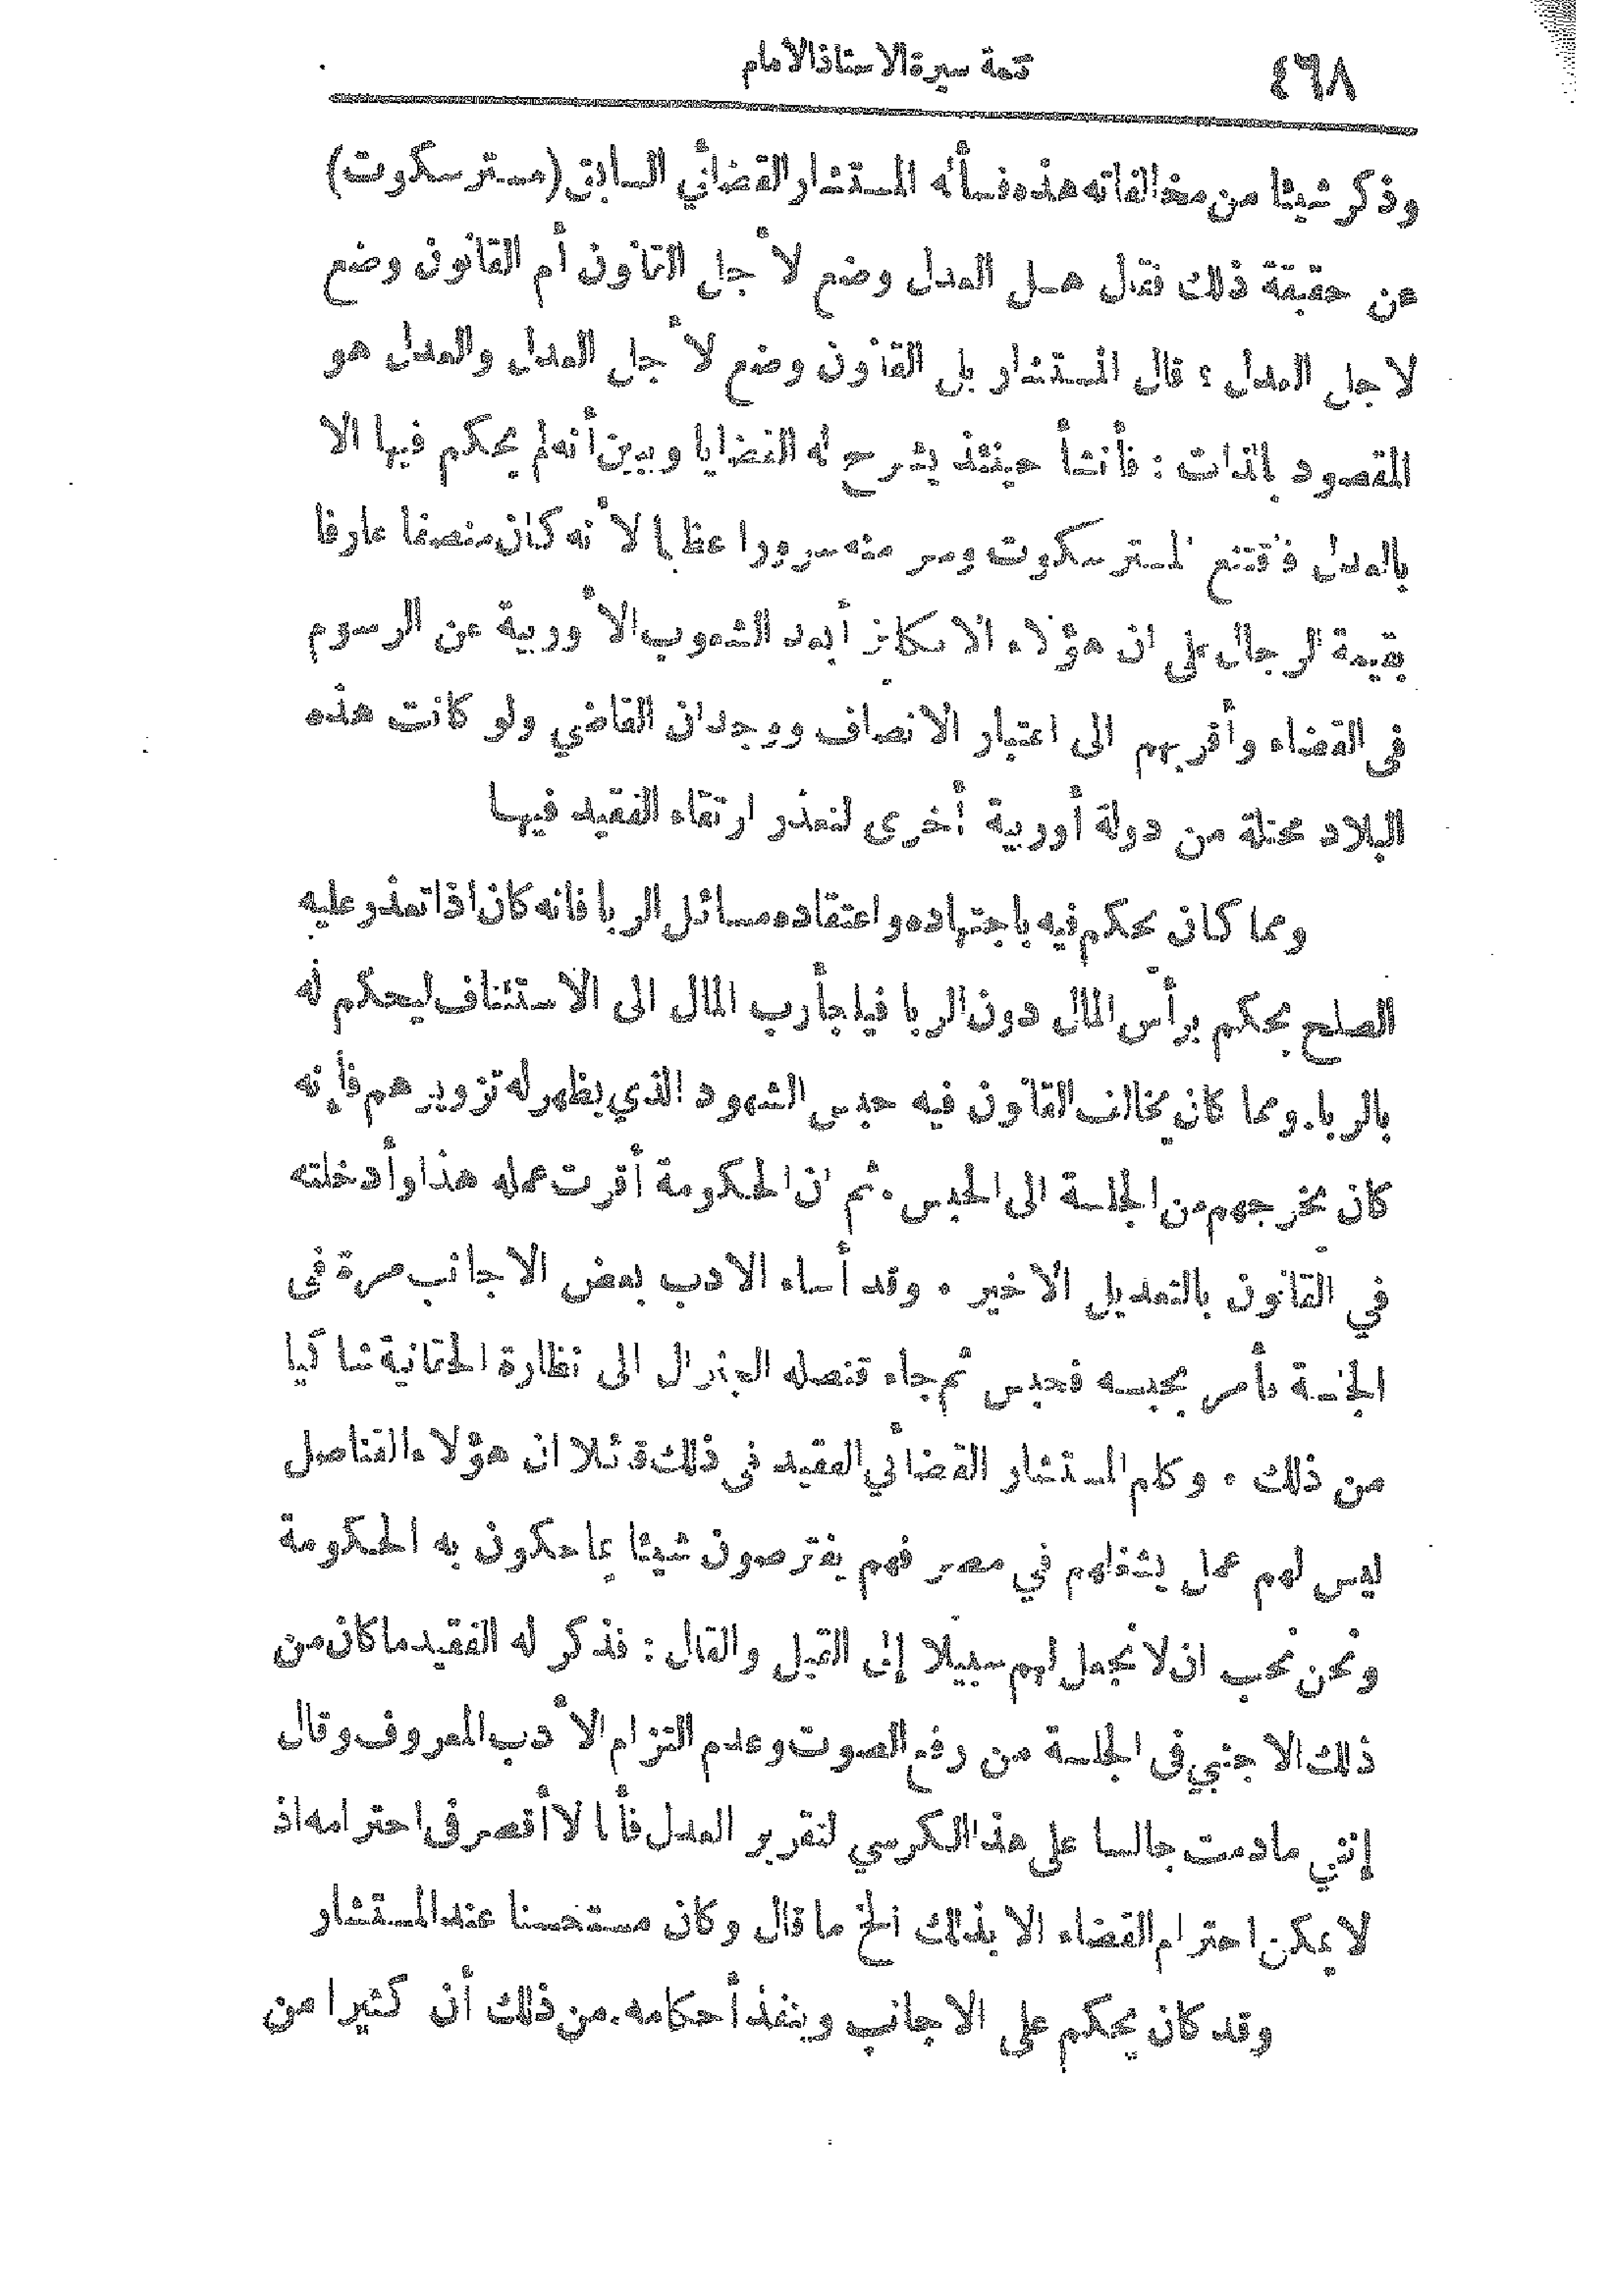 ٤٦٨ تتمة سيرة الاستاذ الامام
وذكر شيئا من مخالفاته هذه فسأله المستشار القضائي السابق (مستر سكوت)
عن حقيقة ذلك فقال هل العدل وضع لأجل القانون أم القانون وضع
لاجل العدل ؟ قال المستشار بل القانون وضع لأجل العدل والعدل هو
المقصود بالذات : فأنشأ حينئذ يشرح له القضايا ويبين أنه لم يحكم فيها الا
بالعدل فاقتنع المستر سكوت وسر منه سرورا عظيما لأنه كان منصفا عارفا
بقيمة الرجال على ان هؤلاء الانكليز أبعد الشعوب الأوربية عن الرسوم
في القضاء وأقربهم الى اعتبار الانصاف ووجدان القاضي ولو كانت هذه
البلاد محتلة من دولة أوربية أخرى لتعذر ارتقاء الفقيد فيها
ومما كان يحكم فيه باجتهاده واعتقاده مسائل الربا فانه كان اذا تعذر عليه
الصلح يحكم برأس المال دون الربا فيلجأ رب المال الى الاستئناف ليحكم له
بالربا . ومما كان يخالف القانون فيه حبس الشهود الذي يظهر له تزويرهم فإنه
كان يخرجهم من الجلسة الى الحبس . ثم ان الحكومة أقرت عمله هذا وأدخلته
في القانون بالتعديل الاخير . وقد أساء الادب بعض الاجانب مرة في
الجلسة فأمر بحبسه فحبس ثم جاء قنصله الجنرال الى نظارة الحقانية شاكيا
من ذلك . وكلم المستشار القضائي الفقيد في ذلك قائلا ان هؤلاء القناصل
ليس لهم عمل يشغلهم في مصر فهم يفترصون شيئا يماحكون به الحكومة
ونحن نحب ان لا نجعل لهم سبيلا إلى القيل والقال : فذكر له الفقيد ما كان من
ذلك الاجنبي في الجلسة من رفع الصوت وعدم التزام الأدب المعروف وقال
إنني ما دمت جالسا على هذا الكرسي لتقرير العدل فأنا لا أقصر في احترامه اذ
لا يمكن احترام القضاء الا بذلك الخ ما قال وكان مستحسنا عند المستشار
وقد كان يحكم على الاجانب وينفذ أحكامه . من ذلك أن كثيرا من